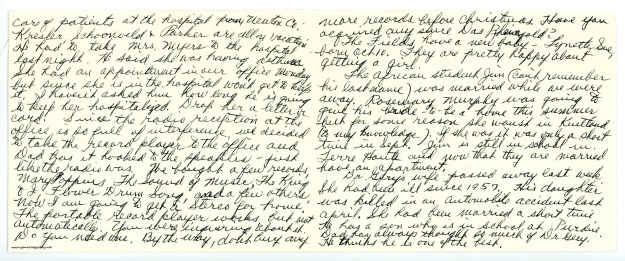 care of patients at the hospital from Newton Co.
Kresler, Schoonveld & Parker are all on vacation.
He had to take Mrs. Myers to the hospital
last night. He said she was having asthma.
She had an appointment in our office Monday
but since she is in the hospital won't get to keep
it. I haven't asked him how long he is going
to keep her hospitalized. Drop her a letter or
card. Since the radio reception at the
office is so full of interference, we decided
to take the record player to the office and
Dad has it hooked to the speakers - just
like the radio was. We bought a few records
Mary Poppins, The Sound of Music, The King
& I, Flower Drum Song, and a few others.
Now I am going to get a "stereo" for "home."
The portable record player works but not
automatically. You were inquiring about it.
Do you need one. By the way, don't buy any
more records before Christmas. Have you
acquired any since Das Rheingold?
The Fields have a new baby - Lynette Sue,
born Oct. 10. They are pretty happy about
getting a girl.
The african student Jim (can't remember
his last name) was married while we were
away. Rosemary Murphy was going to
give his bride to be a home this summer
but for some reason she wasn't in Kentland
(to my knowledge). If she was it was only a short
time in Sept. Jim is still in school in
Terre Haute and now that they are married
have an apartment.
Dr. passed away last week.
She had been ill since 1957. This daughter
was killed in an automobile accident last
April. She had been married a short time.
He has a son who is in school at Purdue.
Dad has always thought so much of Dr.
He thinks he is one of the best.